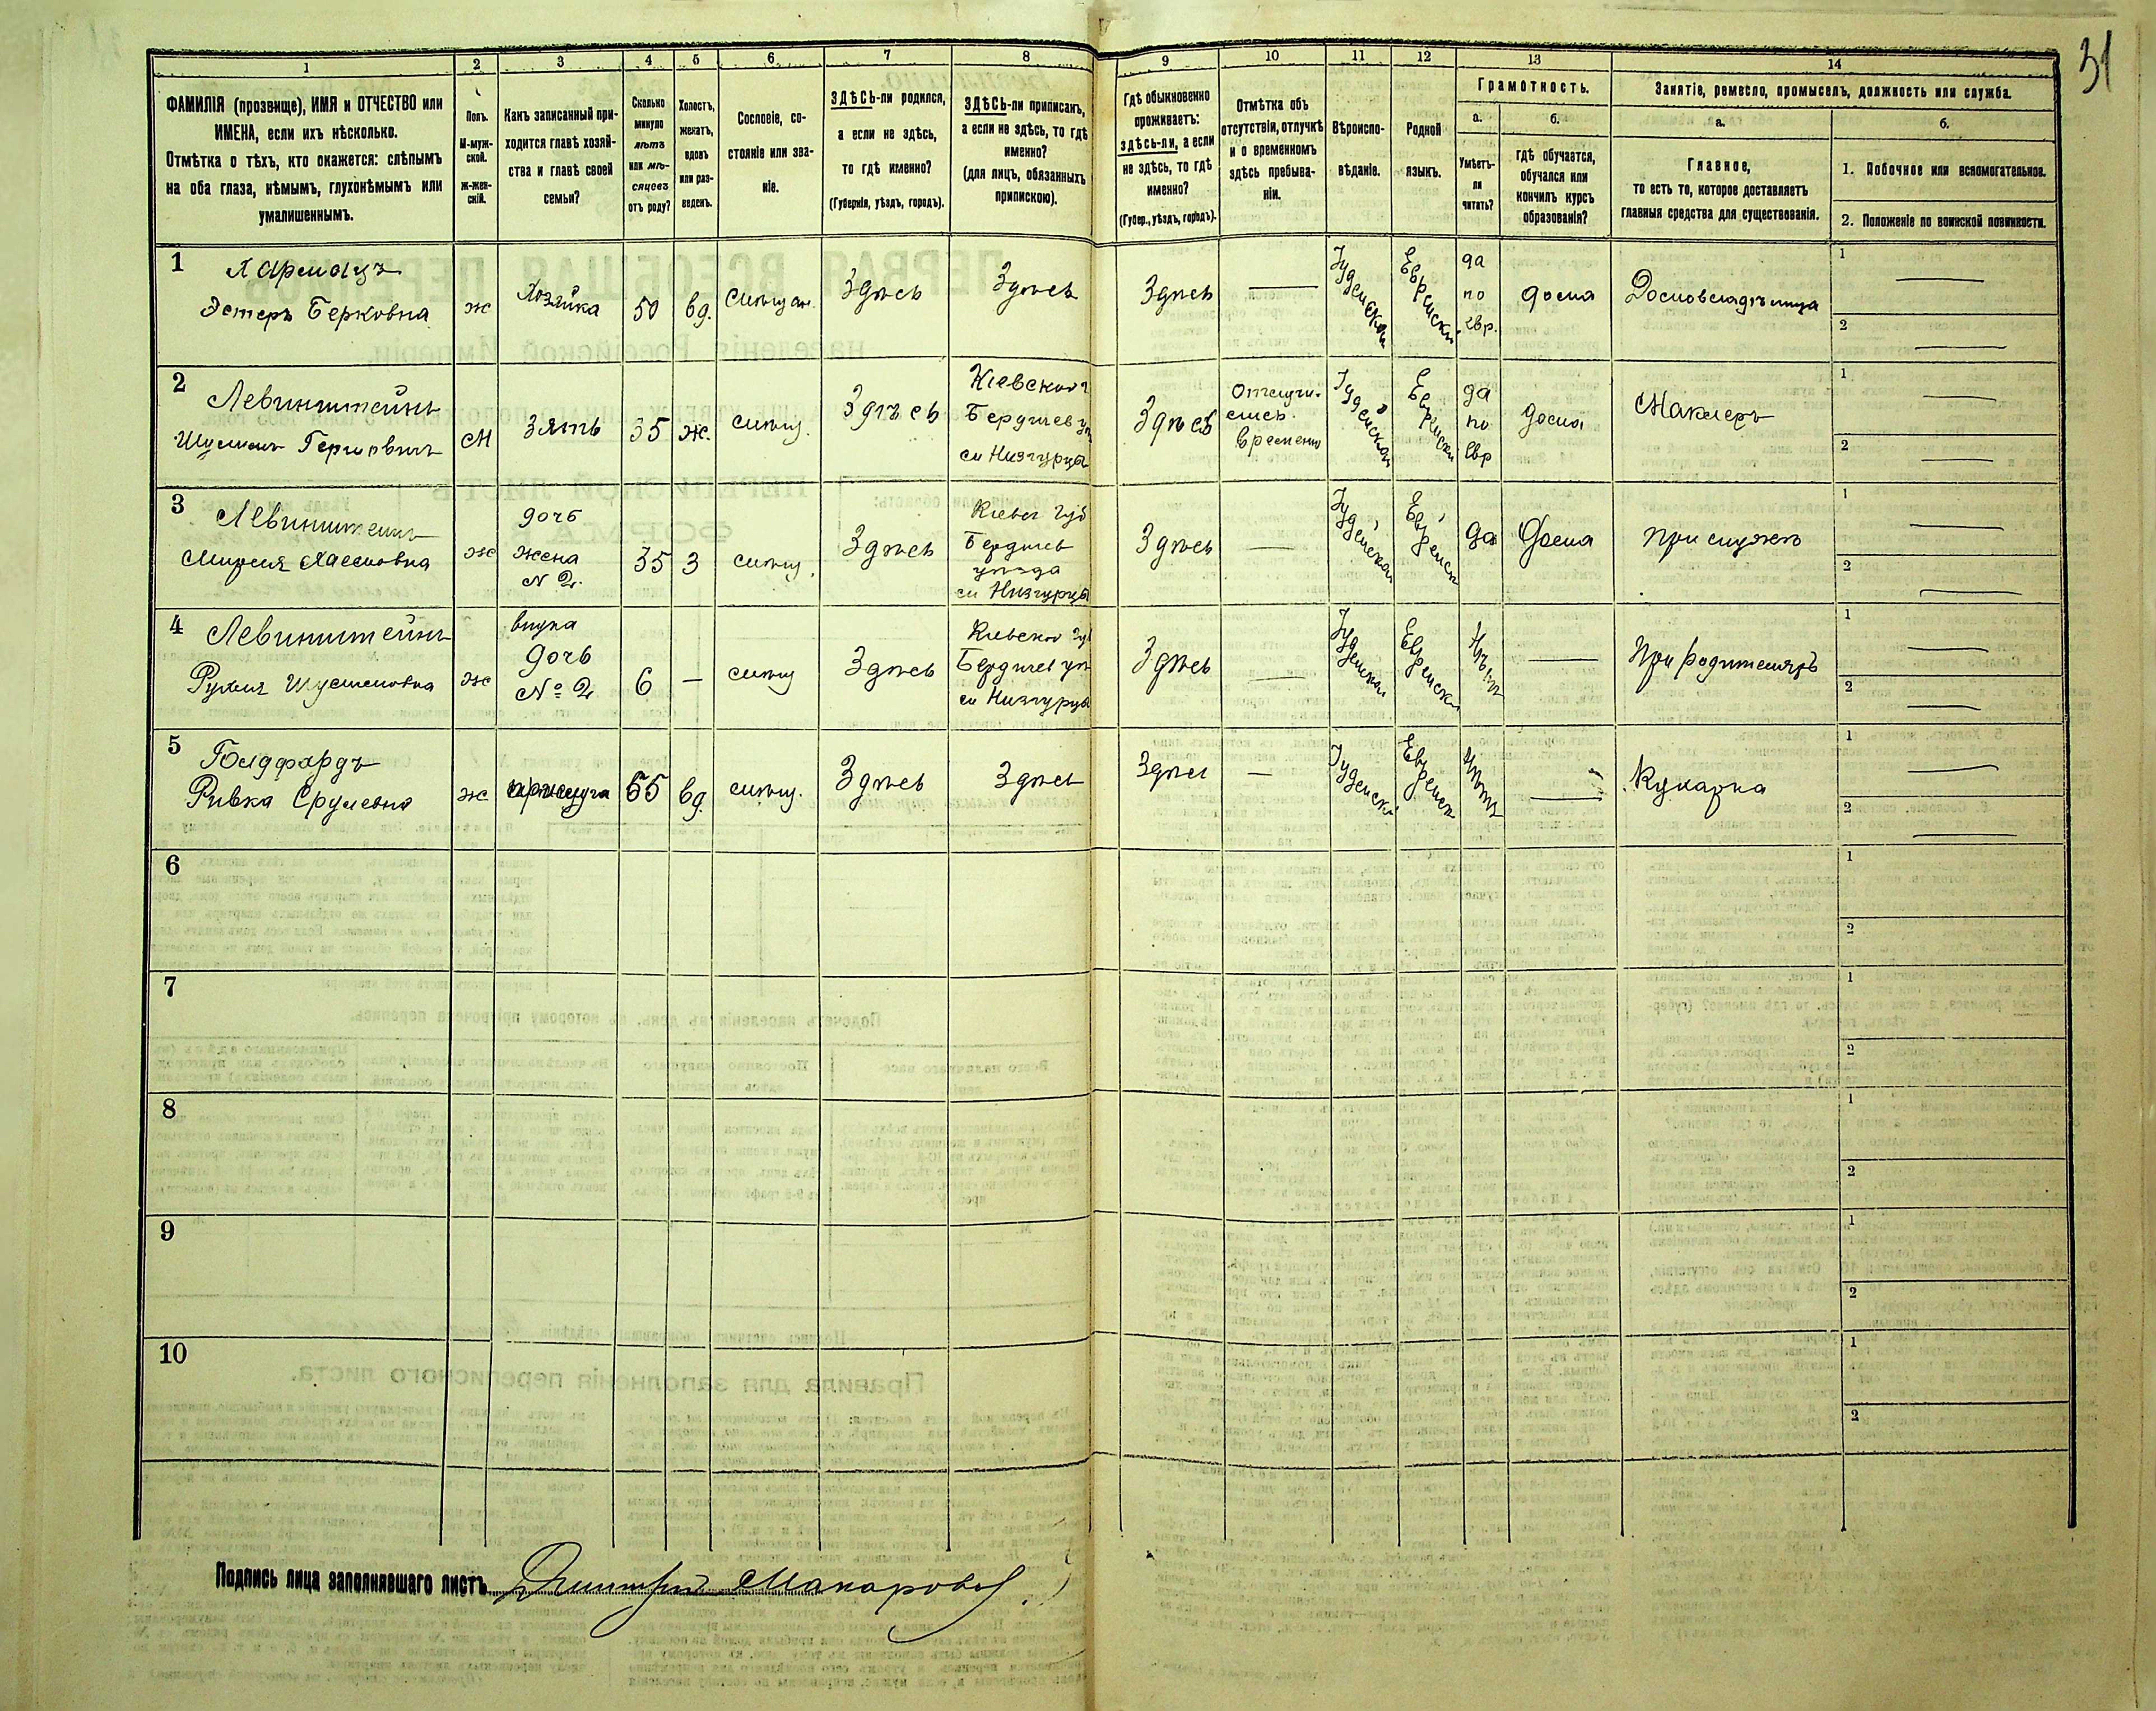 31
1 2 3 4 5 6 7 8 9 10 11 12 13 14
ФАМИЛІЯ (прозвище), ИМЯ и ОТЧЕСТВО или
ИМЕНА, если ихъ нѣсколько.
Отмѣтка о тѣхъ, кто окажется: слѣпымъ
на оба глаза, нѣмымъ, глухонѣмымъ или
умалишеннымъ.
Полъ.
М-муж-
ской.
ж-жен-
скій.
Какъ записанный при-
ходится главѣ хозяй-
ства и главѣ своей
семьи?
Сколько
минуло
лѣтъ
или мѣ-
сяцевъ
отъ роду?
Холостъ,
женатъ,
вдовъ
или раз-
веденъ.
Сословіе, со-
стояніе или зва-
ніе.
ЗДѢСЬ-ли родился,
а если не здѣсь,
то гдѣ именно?
(Губернія, уѣздъ, городъ).
ЗДѢСЬ-ли приписанъ,
а если не здѣсь, то гдѣ
именно?
(для лицъ, обязанныхъ
припискою).
Гдѣ обыкновенно
проживаетъ:
здѣсь-ли, а если
не здѣсь, то гдѣ
именно?
(Губер., уѣздъ, городъ).
Отмѣтка объ
отсутствіи, отлучкѣ
и о временномъ
здѣсь пребыва-
ніи.
Вѣроиспо-
вѣданіе.
Родной
языкъ.
Грамотность.
а.
Умѣетъ-
ли
читать?
б.
гдѣ обучается,
обучался или
кончилъ курсъ
образованія?
Занятіе, ремесло, промыселъ, должность или служба.
а.
Главное,
то есть то, которое доставляетъ
главныя средства для существованія.
б.
1. Побочное или вспомогательное.
2. Положеніе по воинской повинности.
1
Эстеръ Берковна
ж
Хозяйка
50
вд.
Здѣсь
Здѣсь
Здѣсь
—
Іудейская
Еврейскій
да
по
евр.
дома
Домовладѣлица
1 —
2 —
2
Левинштейнъ
М
Зять
35
ж.
мѣщ.
Здѣсь
Кіевской г
Бердичев уѣ
Здѣсь
Отлучи.
временно
Іудейская
Еврейскій
да
по
евр
дома
Маклеръ
1 —
2 —
3
Левинштейнъ
ж
дочь
жена
N 2.
35
З
мѣщ.
Здѣсь
Кіевск губ
Бердичев
уѣзда
Здѣсь
—
Іудейская
Еврейск
да
дома
при мужѣ
1 —
2 —
4
Левинштейнъ
ж
внука
дочь
№ 2
6
—
мѣщ
Здѣсь
Кіевской губ
Бердичев уѣ
Здѣсь
—
Іудейская
Еврейск
Нѣтъ
—
При родителяхъ
1 —
2 —
5
Ривка Срулевна
ж
прислуга
вд.
мѣщ.
Здѣсь
Здѣсь
Здѣс
—
Іудейск
Еврейск
Нѣтъ
—
Кухарка
1 —
2 —
6
1
2
7
1
2
8
1
2
9
1
2
10
1
2
Подпись лица заполнявшаго листъ Дмитрій Макаровъ